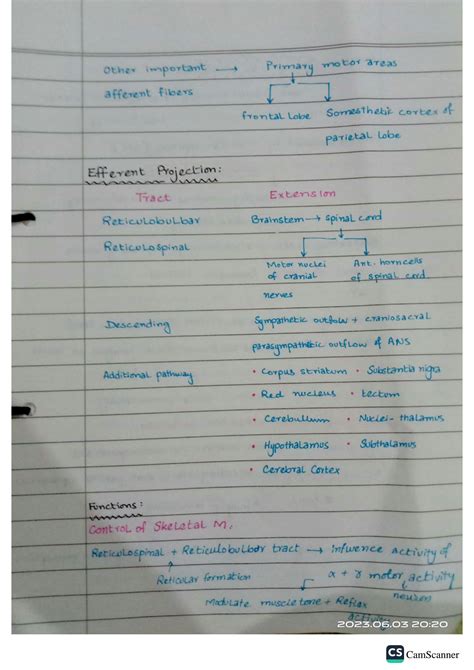 Other important → Primary motor areas
afferent fibers
frontal lobe Somesthetic cortex of
parietal lobe
Efferent Projection:
Tract Extension
Reticulobulbar Brainstem → spinal cord
Reticulospinal
Motor nuclei Ant. horn cells
of cranial of spinal cord
nerves
Descending Sympathetic outflow + craniosacral
parasympathetic outflow of ANS
Additional pathway • Corpus striatum • Substantia nigra
• Red nucleus • tectum
• Cerebullum • Nuclei-thalamus
• Hypothalamus • Subthalamus
• Cerebral Cortex
Functions:
Control of Skeletal M.
Reticulospinal + Reticulobulbar tract → Infuence activity of
Reticular formation α + γ motor activity
neuron
Modulate muscle tone + Reflex
activity
2023.06.03 20:20
CS CamScanner